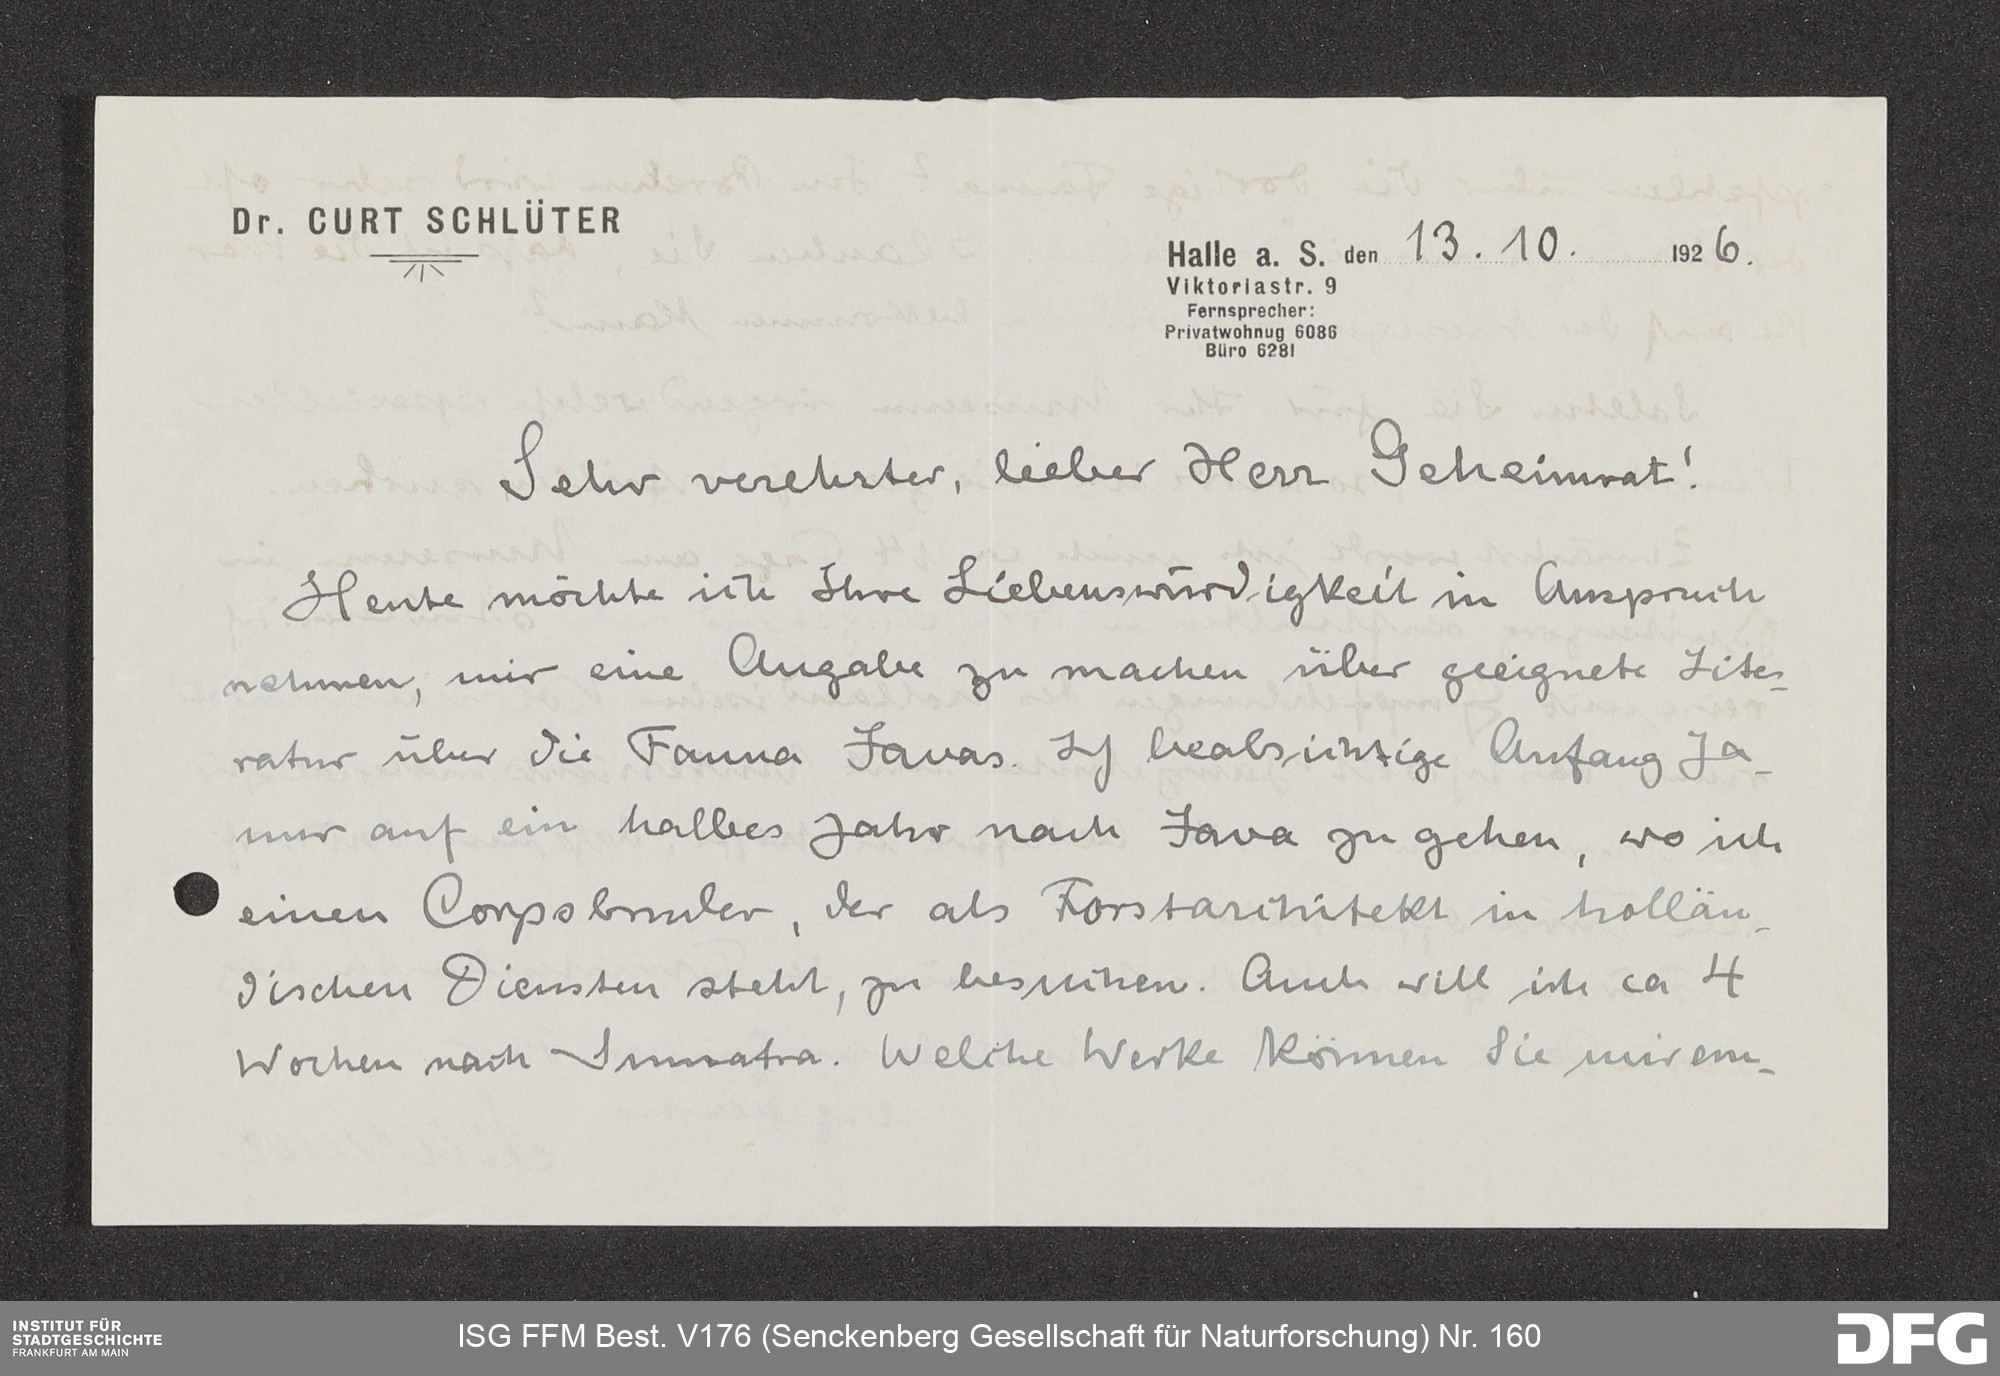 Dr. CURT SCHLÜTER
Halle a. S. den 13. 10. 1926.
Viktoriastr. 9
Fernsprecher:
Privatwohnug 6086
Büro 6281
Sehr verehrter, lieber Herr Geheimrat!
Heute möchte ich Ihre Liebenswürdigkeit in Anspruch
nehmen, mir eine Angabe zu machen über geeignete Lite-
ratur über die Fauna Javas. Ich beabsichtige Anfang Ja-
nuar auf ein halbes Jahr nach Java zu gehen, wo ich
einen Corpsbruder, der als Forstarchitekt in hollän-
dischen Diensten steht, zu besuchen. Auch will ich ca 4
Wochen nach Sumatra. Welche Werke können Sie mir em-
INSTITUT FÜR
STADTGESCHICHTE
FRANKFURT AM MAIN
ISG FFM Best. V176 (Senckenberg Gesellschaft für Naturforschung) Nr. 160
DFG